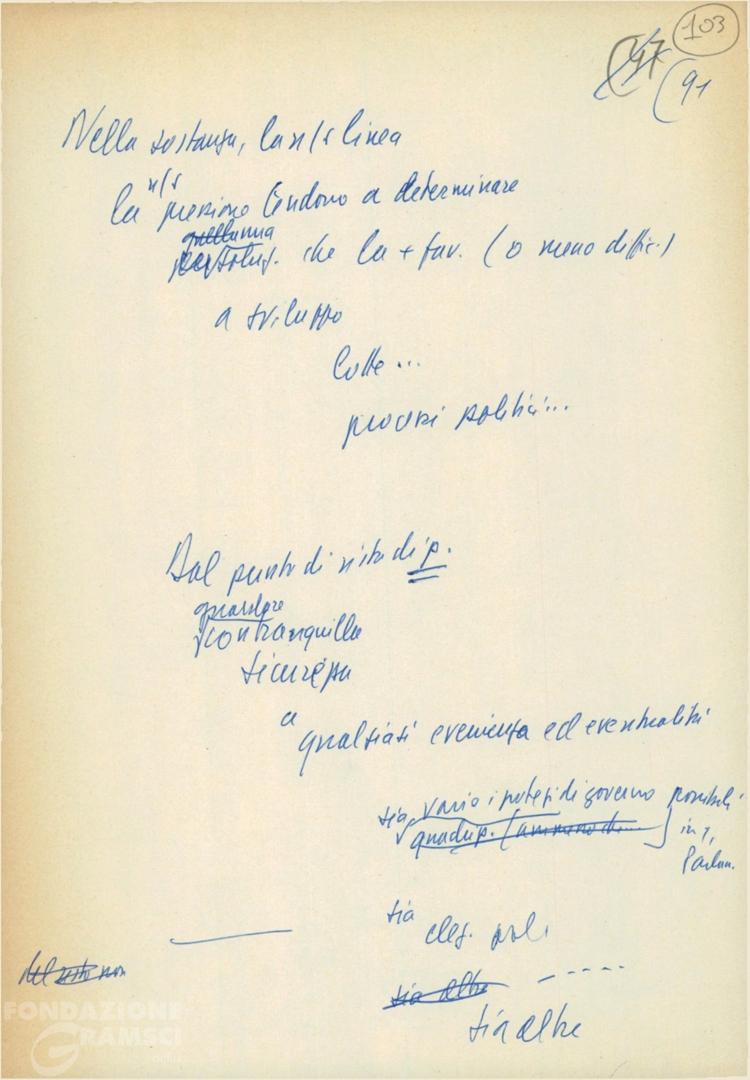 103
47
91
Nella sostanza, la n/s linea
n/s
la pressione tendono a determinare
quella una
soluz. che la + fav. (o meno diffic.)
a sviluppo
lotte ...
processi politici ...
Dal punto di vista di p.
guardare
con tranquilla
sicurezza
a
qualsiasi evenienza ed eventualità
sia varie ipotesi di governo possibili
quadrip. (ammesso che ....) in q.
Parlam.
sia
elez. pol.
del resto non
sia altre - - - - -
sia altre
FONDAZIONE
GRAMSCI